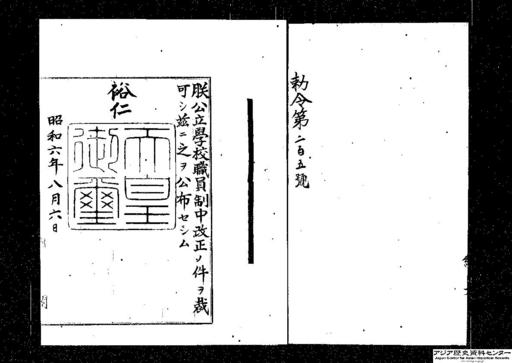 勅令第二百五號
朕公立學校職員制中改正ノ件ヲ裁
可シ玆ニ之ヲ公布セシム
裕仁
天皇御璽
昭和六年八月六日
アジア歴史資料センター
Japan Center for Asian Historical Records